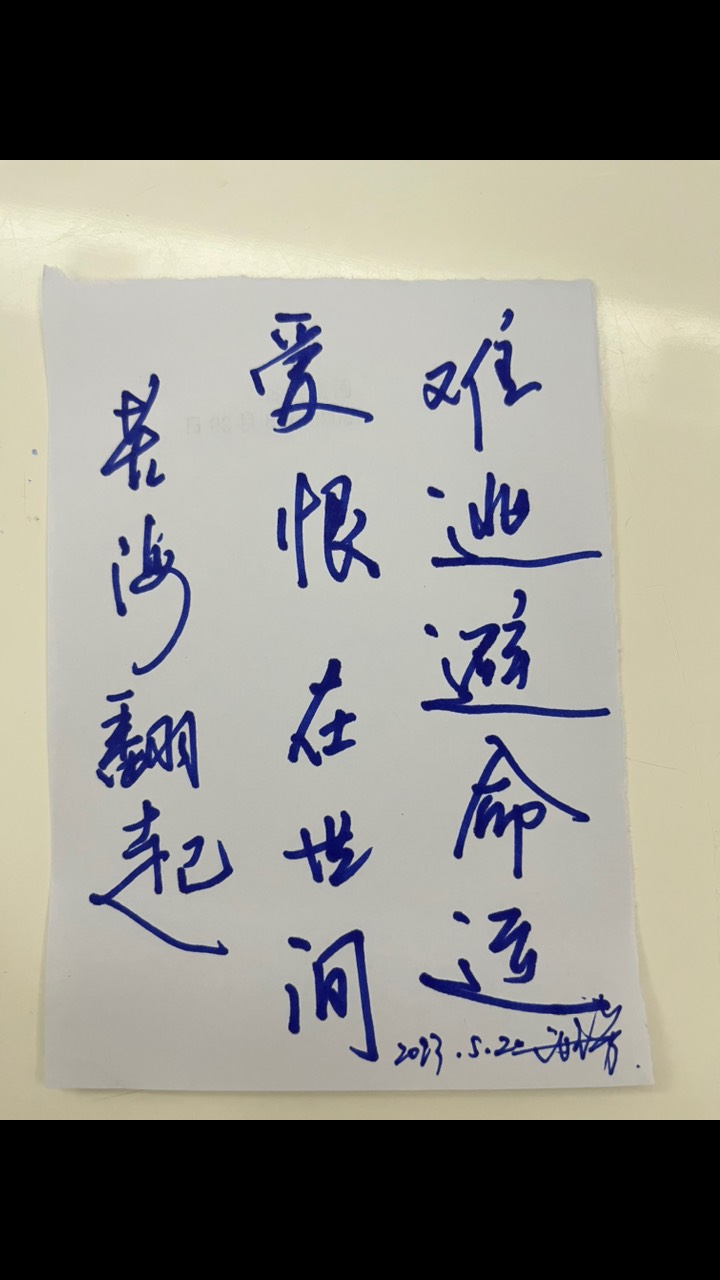 苦海翻起
爱恨在世间
难逃避命运
2023.5.20